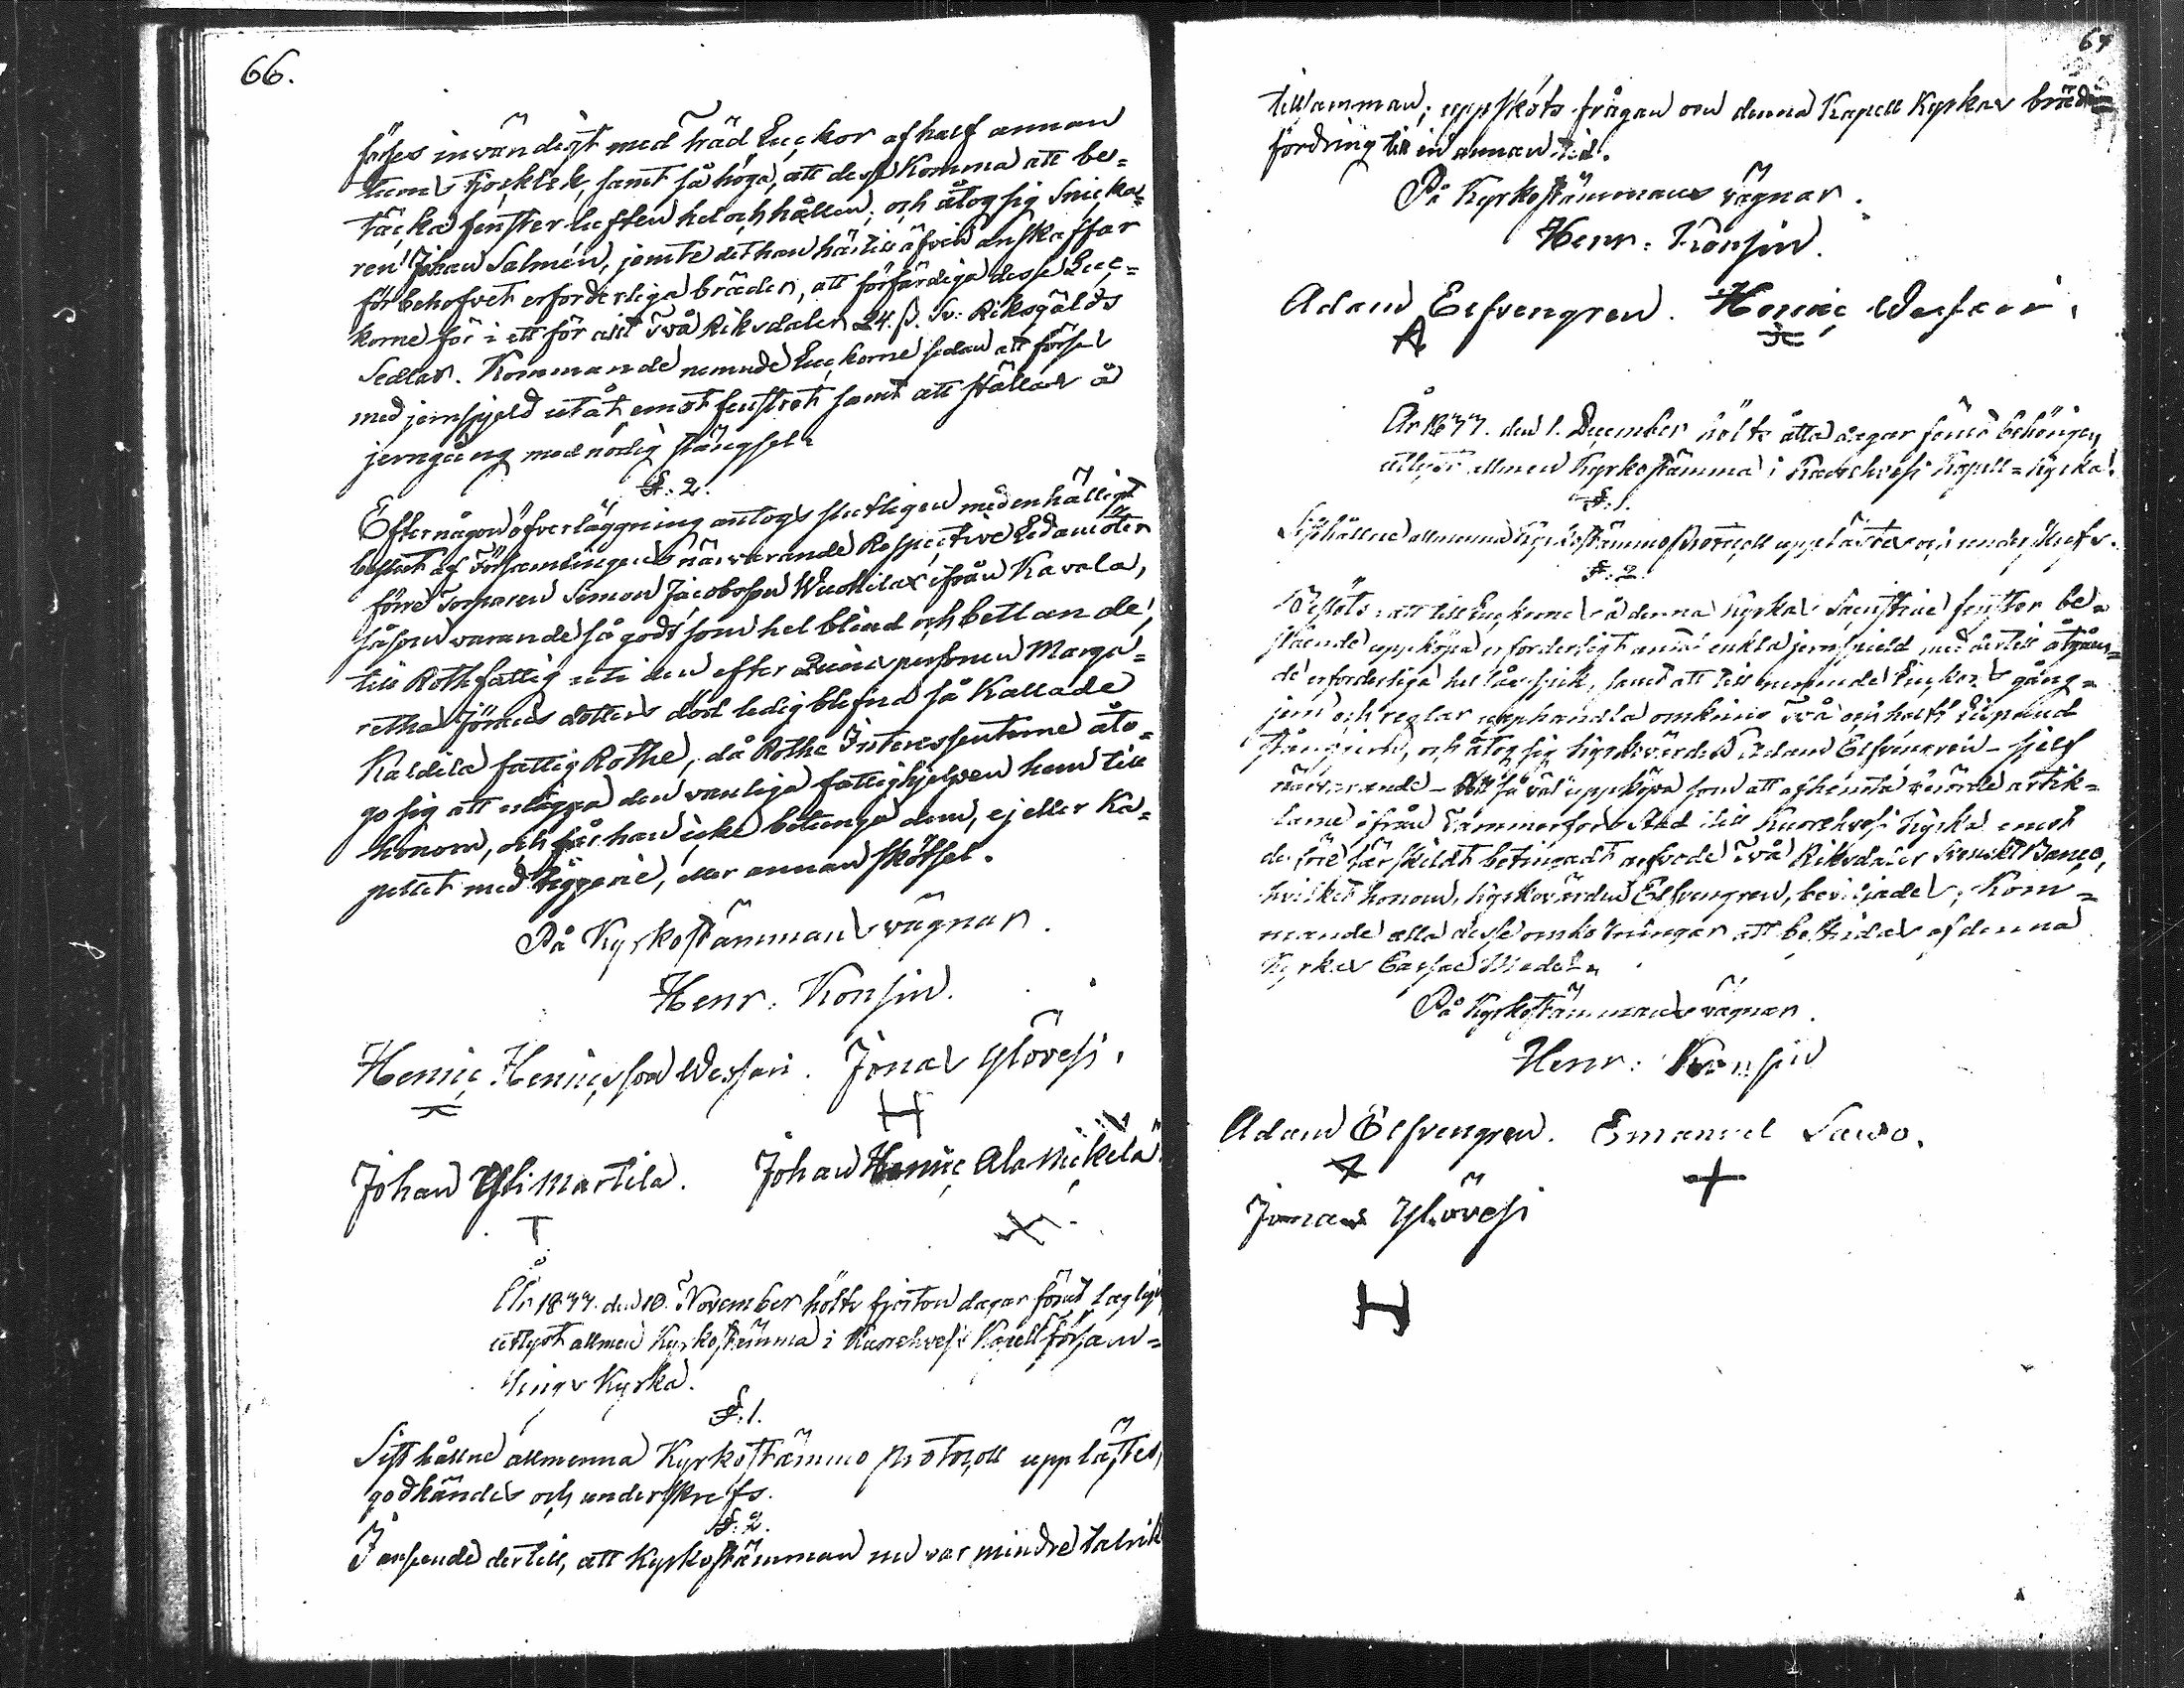 66.
förses invändigt med träd Luckor af half annan
tums tjocklek, samt så höga, att desse komma att be=
täcka fenster luften hel och hållen; och åtog sig Snicka=
ren Johan Salmén, jemte det han härtill äfven anskaffar
för behofvet erforderliga bräder, att förfärdiga desse Luc=
korne för i ett för allt två Riksdaler 24. ß. Sv: Riksgälds
Sedlar. Kommande nemnde Luckorne sedan att förses
med jernspjeld utåt emot fenstret samt att ställas å
jerngång med nödig stängsel.
§: 2.
Efter någon öfverläggning antogs slutligen med enhälligt
beslut af Församlingens närvarande Respective Ledamöter
förre Torparen Simon Jacobsson Wuohilax ifrån Kavala,
såsom varande så godt som hel blind och bettlande,
till Rothfattig uti den efter Qvinspersonen Marga=
retha Jöransdotters död ledig blefna så kallade
Kaldila fattig Rothe, då Rothe Interessenterne åto=
go sig att utlägga den vanliga fattighjelpen hem till
honom, och får han icke betunga dem, ej eller Ka=
pellet med tiggerie, eller annan skötsel.
På Kyrkostämmans vägnar.
Henr: Konsin.
Henric Henricsson Wessari. Jonas Ylövesi.
Johan Yli Martila. Johan Henric Ala Mickelä
År 1833. den 10. November hölts fjorton dagar förut lagligen
utlyst allmen Kyrkostämma i Kuorehvesi Kapellförsam=
lings Kyrka.
§: 1.
Sist hållne allmenna Kyrkostämmo Protocoll upplästes,
godkändes och underskrefs.
§: 2.
I anseende dertill, att Kyrkostämman nu var mindre talrik
67
tillsamman; uppsköts frågan om denna Kapell Kyrkas bräd
fordring till en annan tid.
På Kyrkostämmans vägnar.
Henr: Konsin.
Adam Elfvengren. Henric Wessari.
År 1833. den 1. December hölts åtta dagar förut behörigen
utlyst allmen Kyrkostämma i Kuorehvesi Kapell=Kyrka.
§: 1.
Sisthållne allmenna Kyrkostämmo Protocoll upplästes och underskrefs.
§: 2.
Beslöts: att till Luckorne å denna Kyrkas Sacristie fenster be=
stående uppköpa erforderligt antal enkla jernspjeld med dertill åtgåen=
de erforderliga spik, samt att till nemnde Luckors gång=
jern och reglar upphandla omkring två och halft Lispund
stångjern, och åtog sig Kyrkovärden Adam Elfvengren - sjelf
närvarande - att så väl uppköpa som att afhemta rörde artik=
larne ifrån Tammerfors Stad till Kuorehvesi Kyrka emot
derföre särskildt betingadt arfvode två Riksdaler Svenskt Banco,
hvilket honom, Kyrkovärden Elfvengren, beviljades; Kom=
mande alla desse omkostningar att bestridas af denna
Kyrkas Cassae Medel.
På Kyrkostämmans vägnar.
Henr: Konsin
Adam Elfvengren. Emanuel Sawo.
Jonas Ylövesi